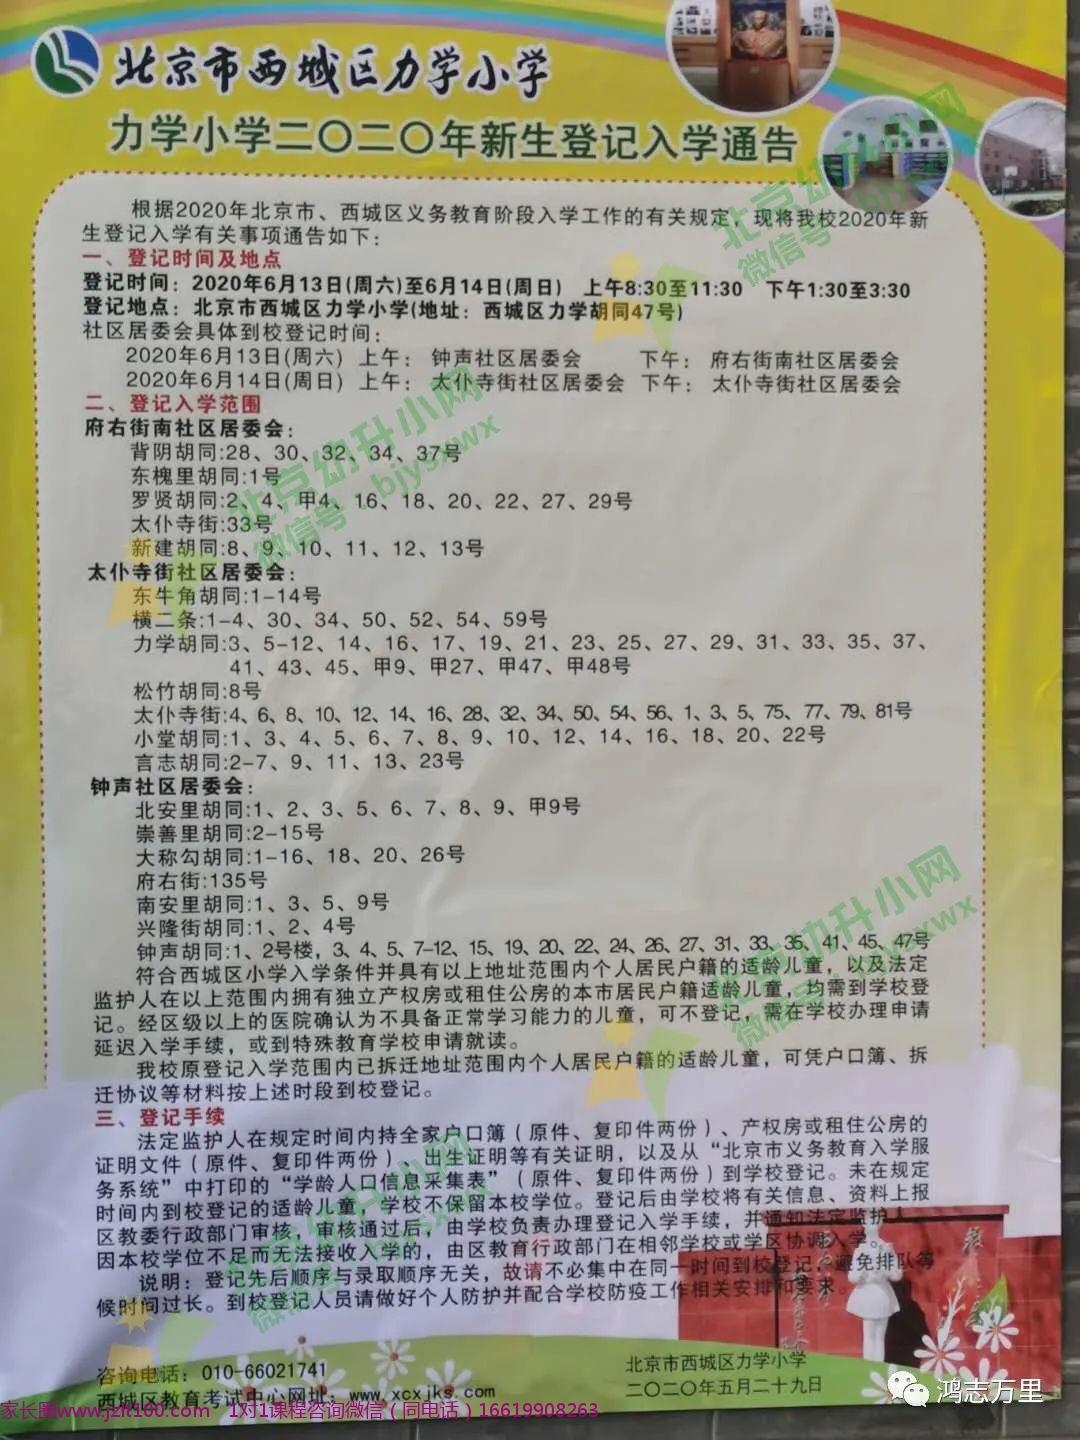 北京市西城区力学小学
力学小学二〇二〇年新生登记入学通告
根据2020年北京市、西城区义务教育阶段入学工作的有关规定，现将我校2020年新
生登记入学有关事项通告如下：
一、登记时间及地点
登记时间：2020年6月13日(周六)至6月14日(周日) 上午8:30至11:30 下午1:30至3:30
登记地点：北京市西城区力学小学(地址：西城区力学胡同47号)
社区居委会具体到校登记时间：
2020年6月13日(周六) 上午： 钟声社区居委会 下午： 府右街南社区居委会
2020年6月14日(周日) 上午： 太仆寺街社区居委会 下午： 太仆寺街社区居委会
二、登记入学范围
府右街南社区居委会：
背阴胡同:28、30、32、34、37号
东槐里胡同:1号
罗贤胡同:2、4、甲4、16、18、20、22、27、29号
太仆寺街:33号
新建胡同:8、9、10、11、12、13号
太仆寺街社区居委会：
东牛角胡同:1-14号
横二条:1-4、30、34、50、52、54、59号
力学胡同:3、5-12、14、16、17、19、21、23、25、27、29、31、33、35、37、
41、43、45、甲9、甲27、甲47、甲48号
松竹胡同:8号
太仆寺街:4、6、8、10、12、14、16、28、32、34、50、54、56、1、3、5、75、77、79、81号
小堂胡同:1、3、4、5、6、7、8、9、10、12、14、16、18、20、22号
言志胡同:2-7、9、11、13、23号
钟声社区居委会：
北安里胡同:1、2、3、5、6、7、8、9、甲9号
崇善里胡同:2-15号
大称勾胡同:1-16、18、20、26号
府右街:135号
南安里胡同:1、3、5、9号
兴隆街胡同:1、2、4号
钟声胡同:1、2号楼，3、4、5、7-12、15、19、20、22、24、26、27、31、33、35、41、45、47号
符合西城区小学入学条件并具有以上地址范围内个人居民户籍的适龄儿童，以及法定
监护人在以上范围内拥有独立产权房或租住公房的本市居民户籍适龄儿童，均需到学校登
记。经区级以上的医院确认为不具备正常学习能力的儿童，可不登记，需在学校办理申请
延迟入学手续，或到特殊教育学校申请就读。
我校原登记入学范围内已拆迁地址范围内个人居民户籍的适龄儿童，可凭户口簿、拆
迁协议等材料按上述时段到校登记。
三、登记手续
法定监护人在规定时间内持全家户口簿（原件、复印件两份）、产权房或租住公房的
证明文件（原件、复印件两份）、出生证明等有关证明，以及从“北京市义务教育入学服
务系统”中打印的“学龄人口信息采集表”（原件、复印件两份）到学校登记。未在规定
时间内到校登记的适龄儿童，学校不保留本校学位。登记后由学校将有关信息、资料上报
区教委行政部门审核，审核通过后，由学校负责办理登记入学手续，并通知法定监护人。
因本校学位不足而无法接收入学的，由区教育行政部门在相邻学校或学区协调入学。
说明：登记先后顺序与录取顺序无关，故请不必集中在同一时间到校登记，避免排队等
候时间过长。到校登记人员请做好个人防护并配合学校防疫工作相关安排和要求。
咨询电话：010-66021741
西城区教育考试中心网址：www.xcxjks.com
北京市西城区力学小学
二〇二〇年五月二十九日
北京幼升小网
微信号：bjysxwx
北京幼升小网
微信号：bjysxwx
北京幼升小网
微信号：bjysxwx
北京幼升小网
微信号：bjysxwx
鸿志万里
家长圈www.jzlt100.com 1对1课程咨询微信（同电话）16619908263